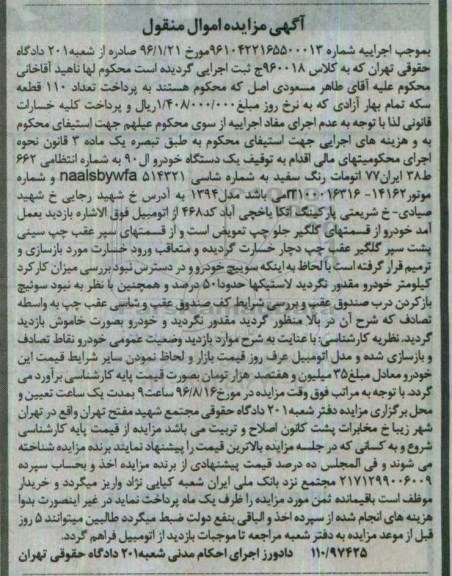 آگهی مزایده اموال منقول
بموجب اجراییه شماره ۹۶۱۰۴۲۲۱۶۵۵۰۰۰۱۳مورخ ۹۶/۱/۲۱ صادره از شعبه۲۰۱ دادگاه
حقوقی تهران که به کلاس ۹۶۰۰۱۸ج ثبت اجرایی گردیده است محکوم لها ناهید آقاخانی
محکوم علیه آقای طاهر مسعودی اصل که محکوم هستند به پرداخت تعداد ۱۱۰ قطعه
سکه تمام بهار آزادی که به نرخ روز مبلغ۱/۴۰۸/۰۰۰/۰۰۰ریال و پرداخت کلیه خسارات
قانونی لذا با توجه به عدم اجرای مفاد اجراییه از سوی محکوم علیهم جهت استیفای محکوم
به و هزینه های اجرایی جهت استیفای محکوم به طبق تبصره یک ماده ۳ قانون نحوه
اجرای محکومیتهای مالی اقدام به توقیف یک دستگاه خودرو ال ۹۰ به شماره انتظامی ۶۶۲
ط۳۸ ایران۷۷ اتومات رنگ سفید به شماره شاسی naalsbywfa ۵۱۴۳۲۱ و شماره
موتور۱۴۱۶۲- ۱۰۰۱۶۳۱۶ می باشد مدل۱۳۹۴ به آدرس خ شهید رجایی خ شهید
صیادی- خ شریعتی پارکینگ اتکا یاخچی آباد کد۴۶۸ از اتومبیل فوق الاشاره بازدید بعمل
آمد خودرو از قسمتهای گلگیر جلو چپ تعویض است و از قسمتهای سپر عقب چپ سینی
پشت سپر گلگیر عقب چپ دچار خسارت گردیده و متعاقب ورود خسارت مورد بازسازی و
ترمیم قرار گرفته است با لحاظ به اینکه سوییچ خودرو و در دسترس نبود بررسی میزان کارکرد
کیلومتر خودرو مقدور نگردید لاستیکها حدودا۵۰ درصد و همچنین با نظر به نبود سوئیچ
بازکردن درب صندوق عقب و بررسی شرایط کف صندوق عقب و شاسی عقب چپ به واسطه
تصادف که شرح آن در بالا منظور گردید مقدور نگردید و خودرو بصورت خاموش بازدید
گردید. نظریه کارشناسی: با عنایت به شرح موارد بازدید وضعیت عمومی خودرو نقاط تصادف
و بازسازی شده و مدل اتومبیل عرف روز قیمت بازار و لحاظ نمودن سایر شرایط قیمت این
خودرو معادل مبلغ۳۵ میلیون و هفتصد هزار تومان بصورت قیمت پایه کارشناسی برآورد می
گردد. با توجه به مراتب فوق وقت مزایده در مورخ ۹۶/۸/۱۶ساعت۹ بمدت یک ساعت تعیین و
محل برگزاری مزایده دفتر شعبه۲۰۱ دادگاه حقوقی مجتمع شهید مفتح تهران واقع در تهران
شهر زیبا خ مخابرات پشت کانون اصلاح و تربیت می باشد مزایده از قیمت پایه کارشناسی
شروع و به کسانی که در جلسه مزایده بالاترین قیمت را پیشنهاد نمایند برنده مزایده شناخته
می شوند و فی المجلس ده درصد قیمت پیشنهادی از برنده مزایده اخذ و بحساب سپرده
۲۱۷۱۲۹۹۰۰۶۰۰۹ مجتمع نزد بانک ملی ایران شعبه کیایی نژاد واریز میگردد و خریدار
موظف است باقیمانده ثمن مورد مزایده را ظرف یک ماه پرداخت نماید در غیر اینصورت بدوا
هزینه های انجام شده از سپرده اخذ و الباقی بنفع دولت ضبط میگردد طالبین میتوانند ۵ روز
قبل از موعد مزایده به دفتر شعبه مراجعه تا موجبات بازدید از اتومبیل فراهم گردد.
۱۱۰/۹۷۴۲۵ دادورز اجرای احکام مدنی شعبه۲۰۱ دادگاه حقوقی تهران